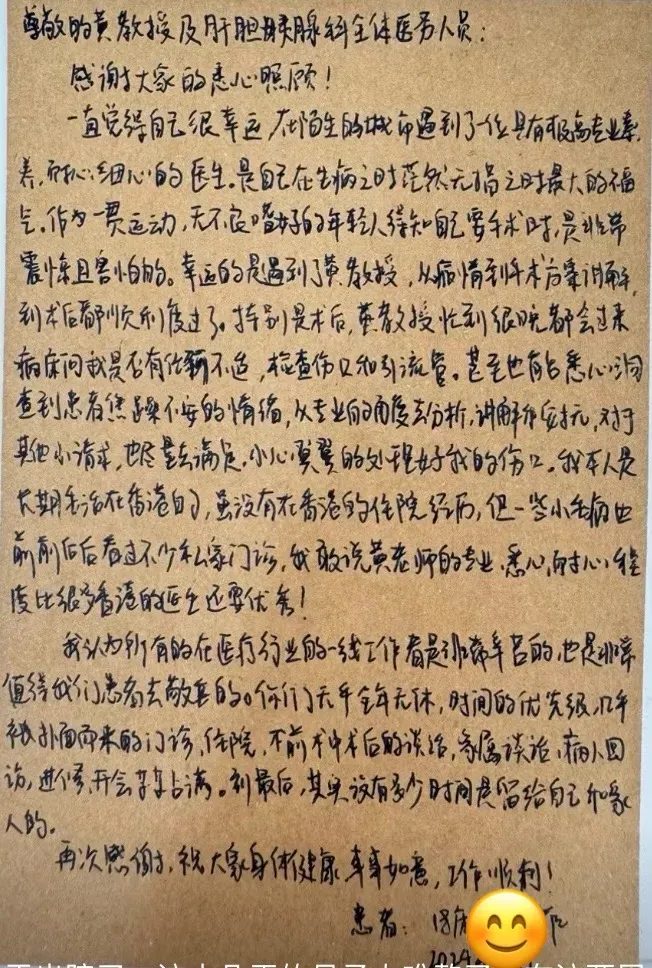 尊敬的黄教授及肝胆胰腺科全体医务人员:
感谢大家的悉心照顾!
一直觉得自己很幸运,在陌生的城市遇到了一位具有极高专业素
养,耐心、细心的医生。是自己在生病之时茫然无措之时最大的福
气。作为一贯运动,无不良嗜好的年轻人得知自己要手术时,是非常
震惊且害怕的。幸运的是遇到了黄教授,从病情到手术方案讲解,
到术后都顺利度过了。特别是术后,黄教授忙到很晚都会过来
病床问我是否有什么不适,检查伤口和引流管。甚至也能悉心洞
查到患者焦躁不安的情绪,从专业的角度去分析,讲解和安抚,对于
其他小请求,也尽量去满足,小心翼翼的处理好我的伤口。我本人是
长期生活在香港的,虽没有在香港的住院经历,但一些小毛病也
前前后后看过不少私家门诊,我敢说黄老师的专业、悉心,耐心程
度比很多香港的医生还要优秀!
我认为所有的在医疗行业的一线工作者是非常辛苦的,也是非常
值得我们患者去敬重的。你们几乎全年无休,时间的优先级,几乎
被扑面而来的门诊,住院,术前术中术后的谈话,家属谈话,病人回
访,进修,开会等等占满。到最后,其实没有多少时间是留给自己和家
人的。
再次感谢,祝大家身体健康,事事如意,工作顺利!
患者:
2024